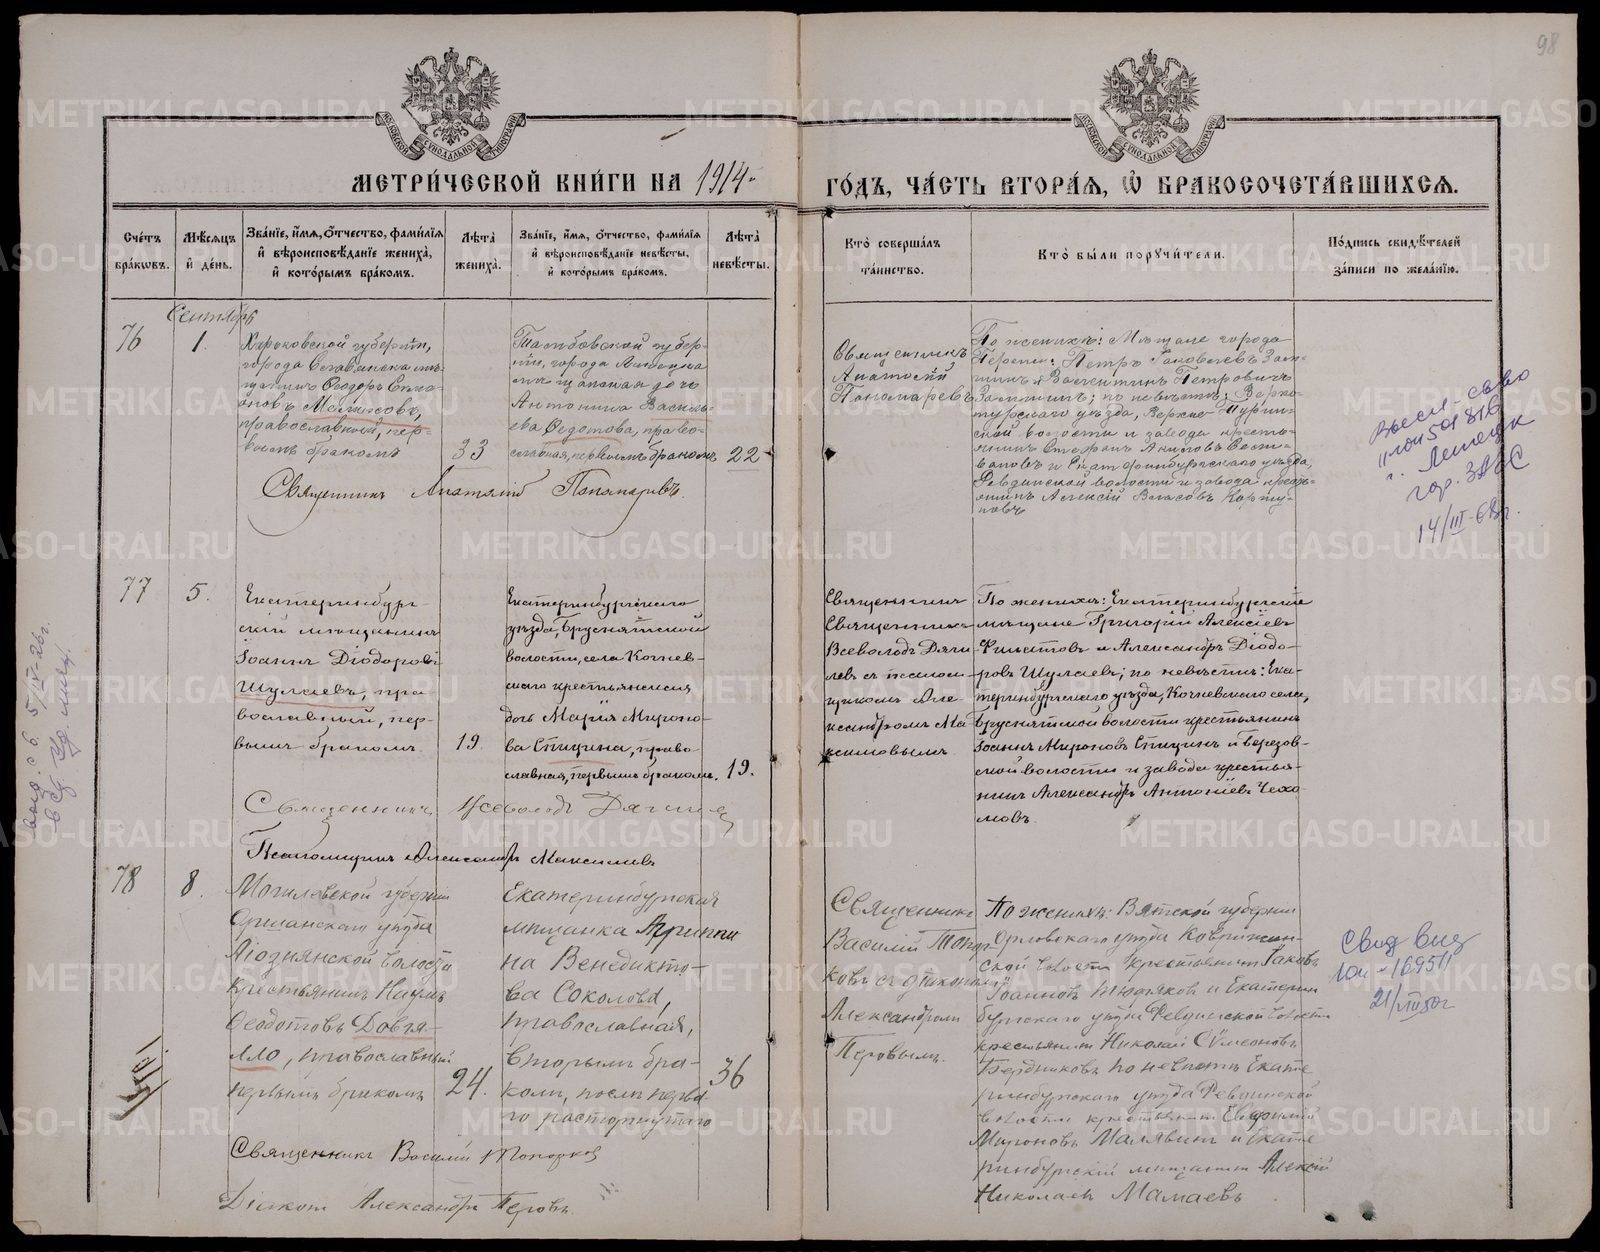 98
МОСКОВСКОЙ СѴНОДАЛЬНОЙ ТИПОГРАФІИ
МОСКОВСКОЙ СѴНОДАЛЬНОЙ ТИПОГРАФІИ
МЕТРИ́ЧЕСКОЙ КНИ́ГИ НА 1914
ГО́ДЪ, ЧА́СТЬ ВТОРА́Я, Ѡ БРАКОСОЧЕТА́ВШИХСЯ.
Сче́тъ бра́ковъ.
Мѣ́сяцъ и҆ де́нь.
Зва́нїе, и҆́мя, о҆́тчество, фами́лїя и҆ вѣроисповѣ́данїе жениха̀, и҆ кото́рымъ бра́комъ.
Лѣ́та жениха̀.
Зва́нїе, и҆́мя, о҆́тчество, фами́лїя и҆ вѣроисповѣ́данїе невѣ́сты, и҆ кото́рымъ бра́комъ.
Лѣ́та невѣ́сты.
Кто̀ соверша́лъ та́инство.
Кто̀ бы́ли порꙋчи́тели.
По́дпись свидѣ́телей за́писи по жела́нїю.
Сентябрь
76
1.
Харьковской губерніи,
города Славянска мѣ-
щанинъ Ѳеодоръ
православный, пер-
вымъ бракомъ
33
Тамбовской губер-
ніи, города Липецка
мѣщанская дочь
Антонина Василь-
ева Ѳедотова, право-
славная, первымъ бракомъ
22
Священникъ
Анатолій
Пономаревъ
По женихѣ: Мѣщане города
Перми: Петръ Яковлевъ Зам-
шинъ и Валентинъ Петровичъ
Замшинъ; по невѣстѣ: Верхо-
турскаго уѣзда, Верхне-Турин-
ской волости и завода кресть-
янинъ Стефанъ
и Екатеринбургскаго уѣзда,
Ревдинской волости и завода кресть-
янинъ Алексій Власовъ
Священникъ Анатолій Пономаревъ.
г. Липецк
гор. ЗАГС
14/III-68г.
77
5.
Екатеринбург-
скій мѣщанинъ
Іоаннъ Діодоровъ
Шулаевъ, пра-
вославный, пер-
вымъ бракомъ.
19.
Екатеринбургскаго
уѣзда, Бруснятской
волости, села Кочнев-
скаго крестьянская
дочь Марія Мироно-
ва Спицина, право-
славная, первымъ бракомъ.
19.
Священникъ
Священникъ
Всеволодъ Дяги-
левъ съ псалом-
щикомъ Але-
ксандромъ Ма-
ксимовымъ.
По женихѣ: Екатеринбургскіе
мѣщане Григорій Алексіевъ
Филатовъ и Александръ Діодо-
ровъ Шулаевъ; по невѣстѣ: Ека-
теринбургскаго уѣзда, Кочневскаго села,
Бруснятской волости крестьянинъ
Іоаннъ Мироновъ Спицинъ и Березов-
ской волости и завода крестья-
нинъ Александръ Антоніевъ Чехо-
мовъ.
Священникъ Всеволодъ Дягилев
Псаломщикъ Александръ Максимовъ
78
8.
Могилевской губерніи
Оршанскаго уѣзда
Ліознянской волости
крестьянинъ Наумъ
Ѳеодотовъ Довгя-
лло, православный
первымъ бракомъ
24.
Екатеринбургская
мѣщанка Агриппи
на Венедикто-
ва Соколова,
православная,
вторымъ бра-
комъ, послѣ перва
го расторгнутаго
36
Священникъ
Василій Топор-
ковъ съ діакономъ
Александромъ
Перовымъ.
По женихѣ: Вятской губерніи
Орловскаго уѣзда
ской волости крестьянинъ Іаковъ
Іоанновъ и Екатерин
бургскаго уѣзда Ревдинской волости
крестьянинъ Николай Сѵмеоновъ
Бердниковъ по невѣстѣ Екате
ринбургскаго уѣзда Ревдинской
волости крестьянинъ Евфимій
Мироновъ Малявинъ и Екате
ринбургскій мѣщанинъ Алексій
Николаевъ Мамаевъ
Священникъ Василій Топорковъ
Діаконъ Александръ Перовъ.
21/VII 50г
METRIKI.GASO-URAL.RU